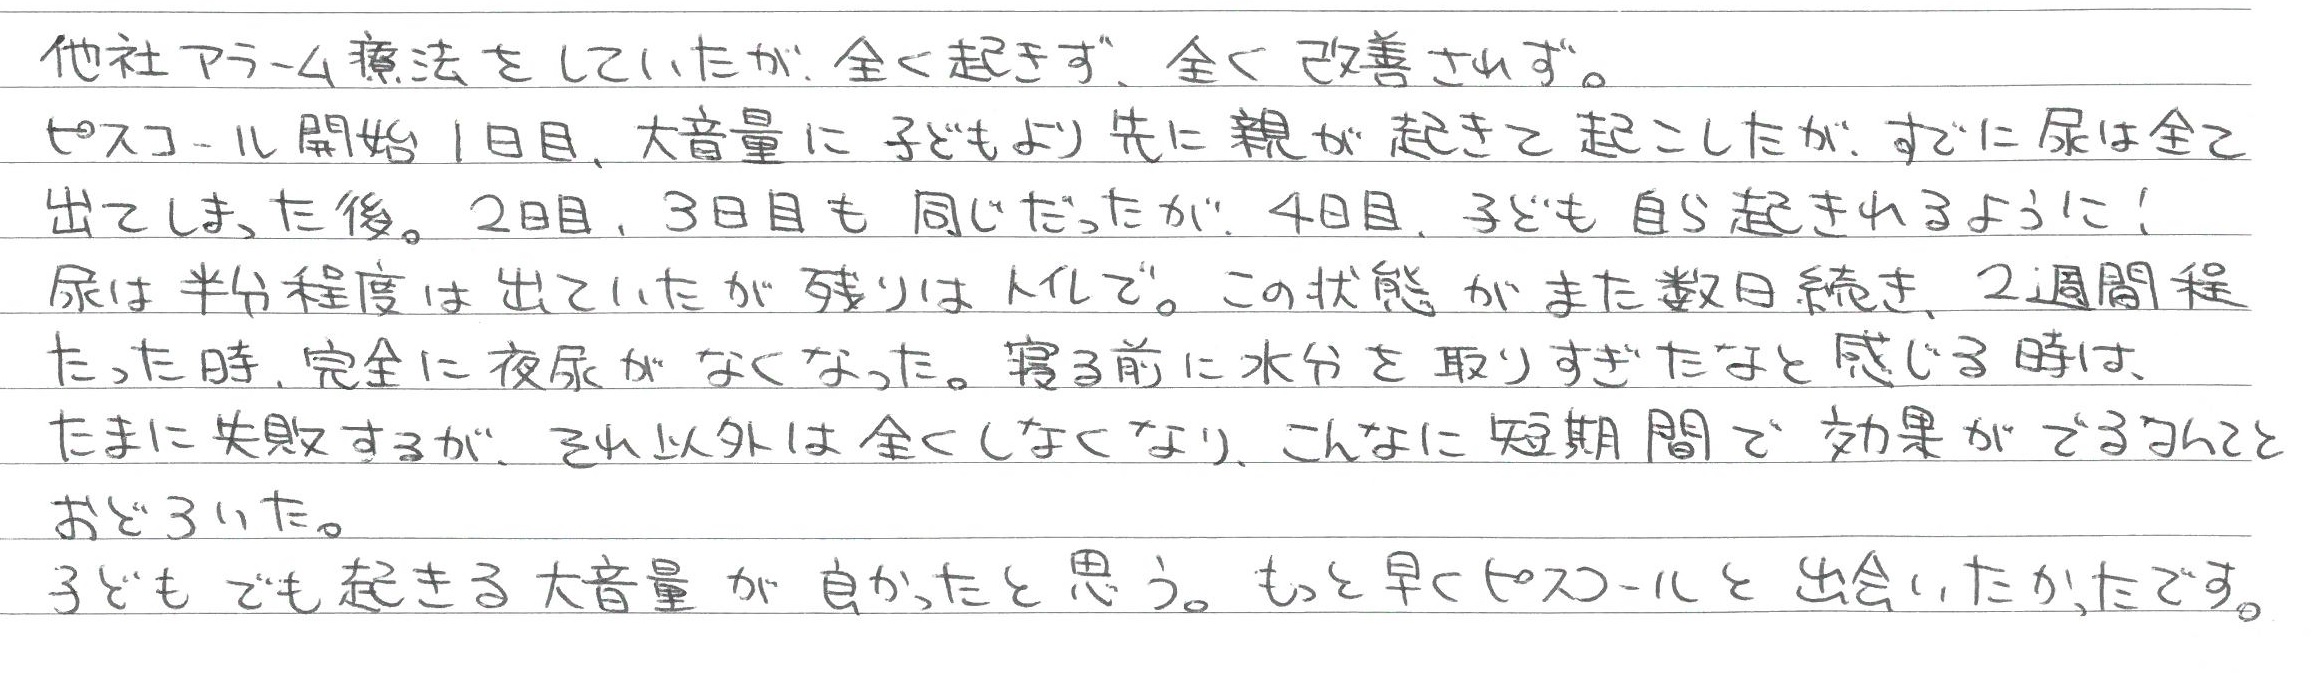 他社アラーム療法をしていたが、全く起きず、全く改善されず。
ピスコール開始1日目、大音量に子どもより先に親が起きて起こしたが、すでに尿は全て
出てしまった後。2日目、3日目も同じだったが、4日目、子ども自ら起きれるように!
尿は半分程度は出ていたが残りはトイレで。この状態がまた数日続き、2週間程
たった時、完全に夜尿がなくなった。寝る前に水分を取りすぎたなと感じる時は、
たまに失敗するが、それ以外は全くしなくなり、こんなに短期間で効果がでるなんてと
おどろいた。
子どもでも起きる大音量が良かったと思う。もっと早くピスコールと出会いたかったです。